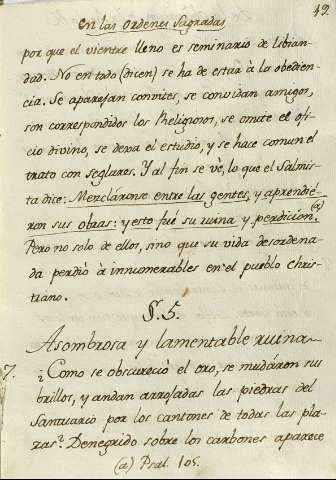 En las Ordenes Sagradas 49
por que el vientre lleno es seminario de libian-
dad. No en todo (dicen) se ha de estar à la obedien-
cia. Se aparejan convites, se convidan amigos,
son correspondidos los Religiosos, se omite el ofi-
cio divino, se dexa el estudio, y se hace comun el
trato con seglares. Y al fin se vé, lo que el Salmis-
ta dice: Mezcláronse entre las gentes, y aprendié-
ron sus obras: y esto fué su ruina y perdición. (a)
Pero no solo de ellos, sino que su vida desordena-
da perdió à innumerables en el pueblo Chris-
tiano.
§. 5.
Asombrosa y lamentable ruina
7. ¿Como se obscureció el oro, se mudáron sus
brillos, y andan arrojadas las piedras del
Santuario por los cantones de todas las pla-
zas? Denegrido sobre los carbones aparece
(a) Psal. 105.